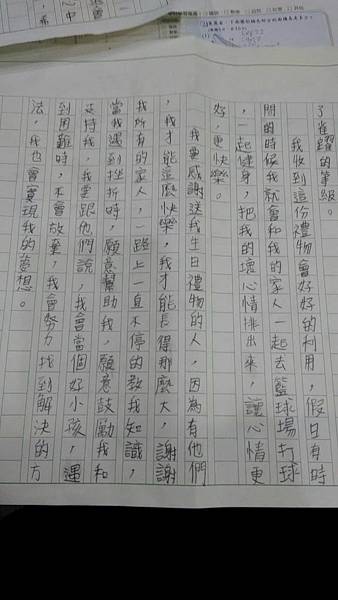 了雀躍的等級。
我收到這份禮物會好好的利用，假日有時
間的時候我就會和我的家人一起去籃球場打球
，一起健身，把我的壞心情排出來，讓心情更
好，更快樂。
我要感謝送我生日禮物的人，因為有他們
，我才能這麼快樂，我才能長得那麼大，謝謝
我所有的家人，一路上一直不停的教我知識，
當我遇到挫折時，願意幫助我，願意鼓勵我和
支持我，我要跟他們說，我會當個好小孩，遇
到困難時，不會放棄，我會努力找到解決的方
法，我也會實現我的夢想。